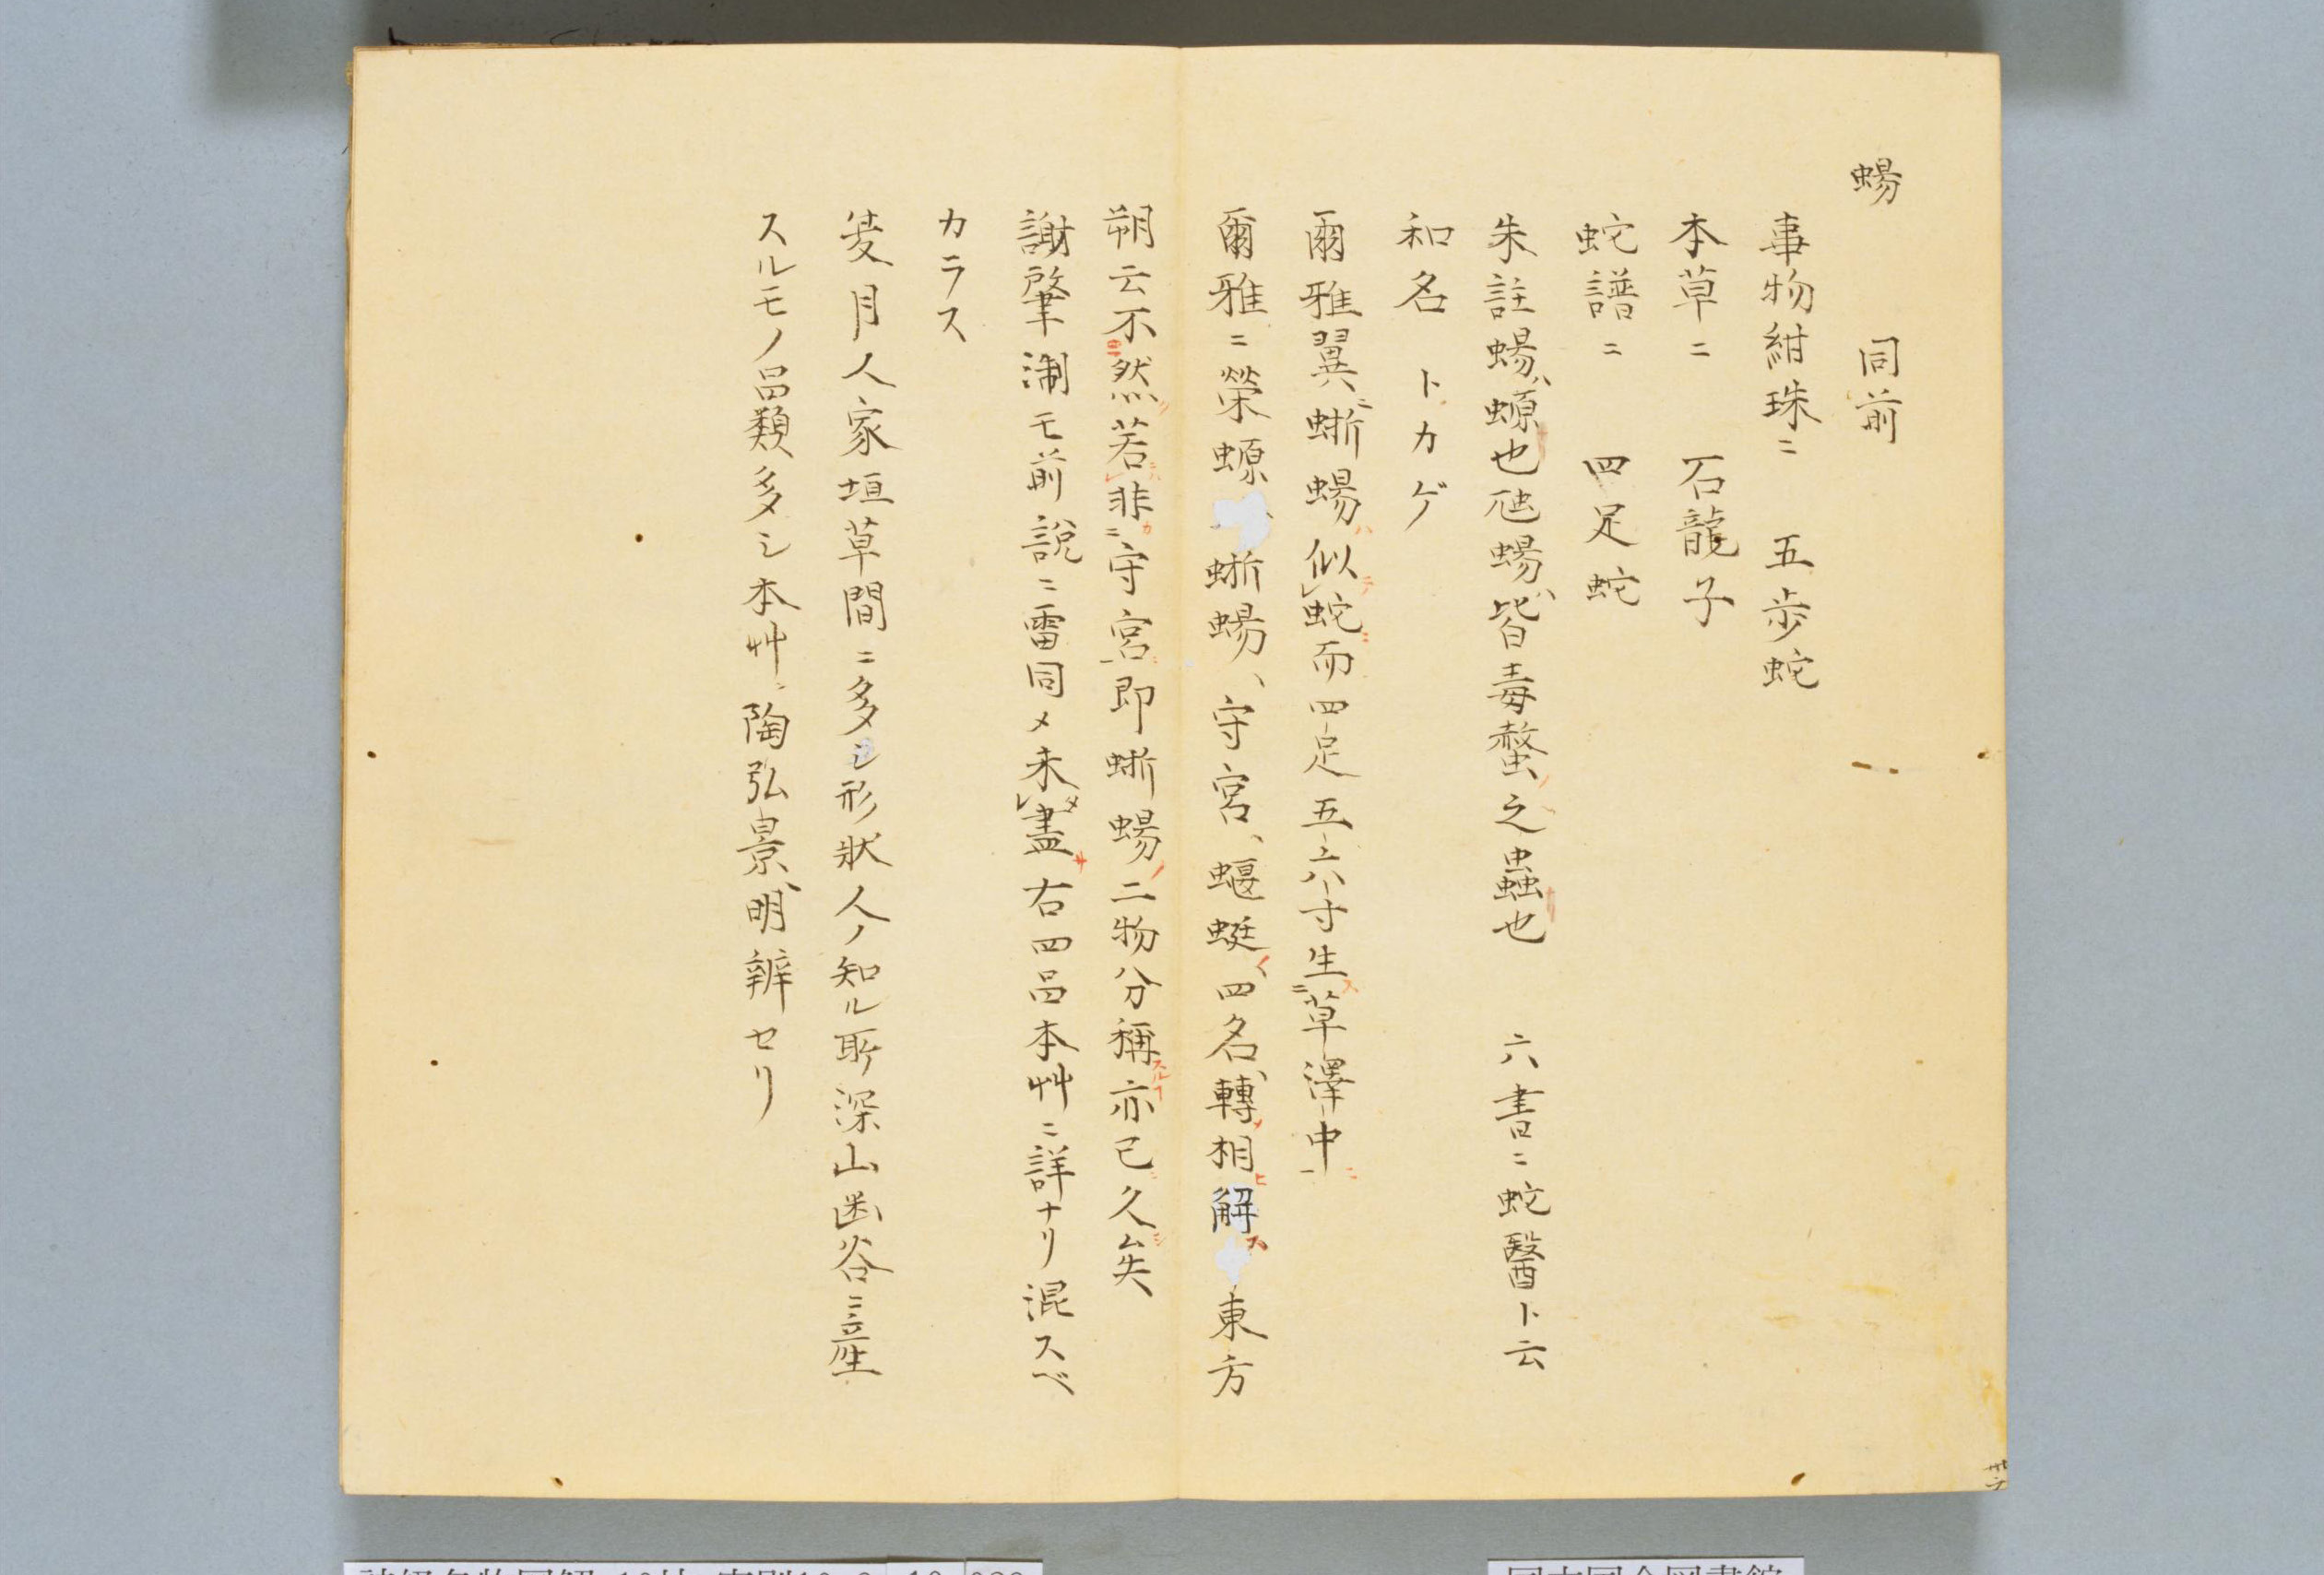 蜴　　同前
事物紺珠ニ　五歩蛇
本草ニ　石龍子
蛇譜ニ　四足蛇
朱註蜴ハ螈也虺蜴ハ皆毒螫ノ之蟲也　六書ニ蛇醫ト云
和名　トカゲ
爾雅翼ニ蜥蜴ハ似テレ蛇ニ而四足五六寸生スニ草澤中一ニ
爾雅ニ榮螈、蜥蜴、守宮、蝘蜓ノ四名轉メ相ヒ解ス東方
朔云不然若非ニ守宮一即蜥蜴ノ二物分稱スルヿ亦已ニ久シ矣
謝肇淛モ前説ニ雷同メ未タレ盡サ右四品本艸ニ詳ナリ混スベ
カラス
夌月人家垣草間ニ多シ形狀人ノ知ル所深山幽谷ニ産
スルモノ品類多シ本艸ニ陶弘景明辨セリ